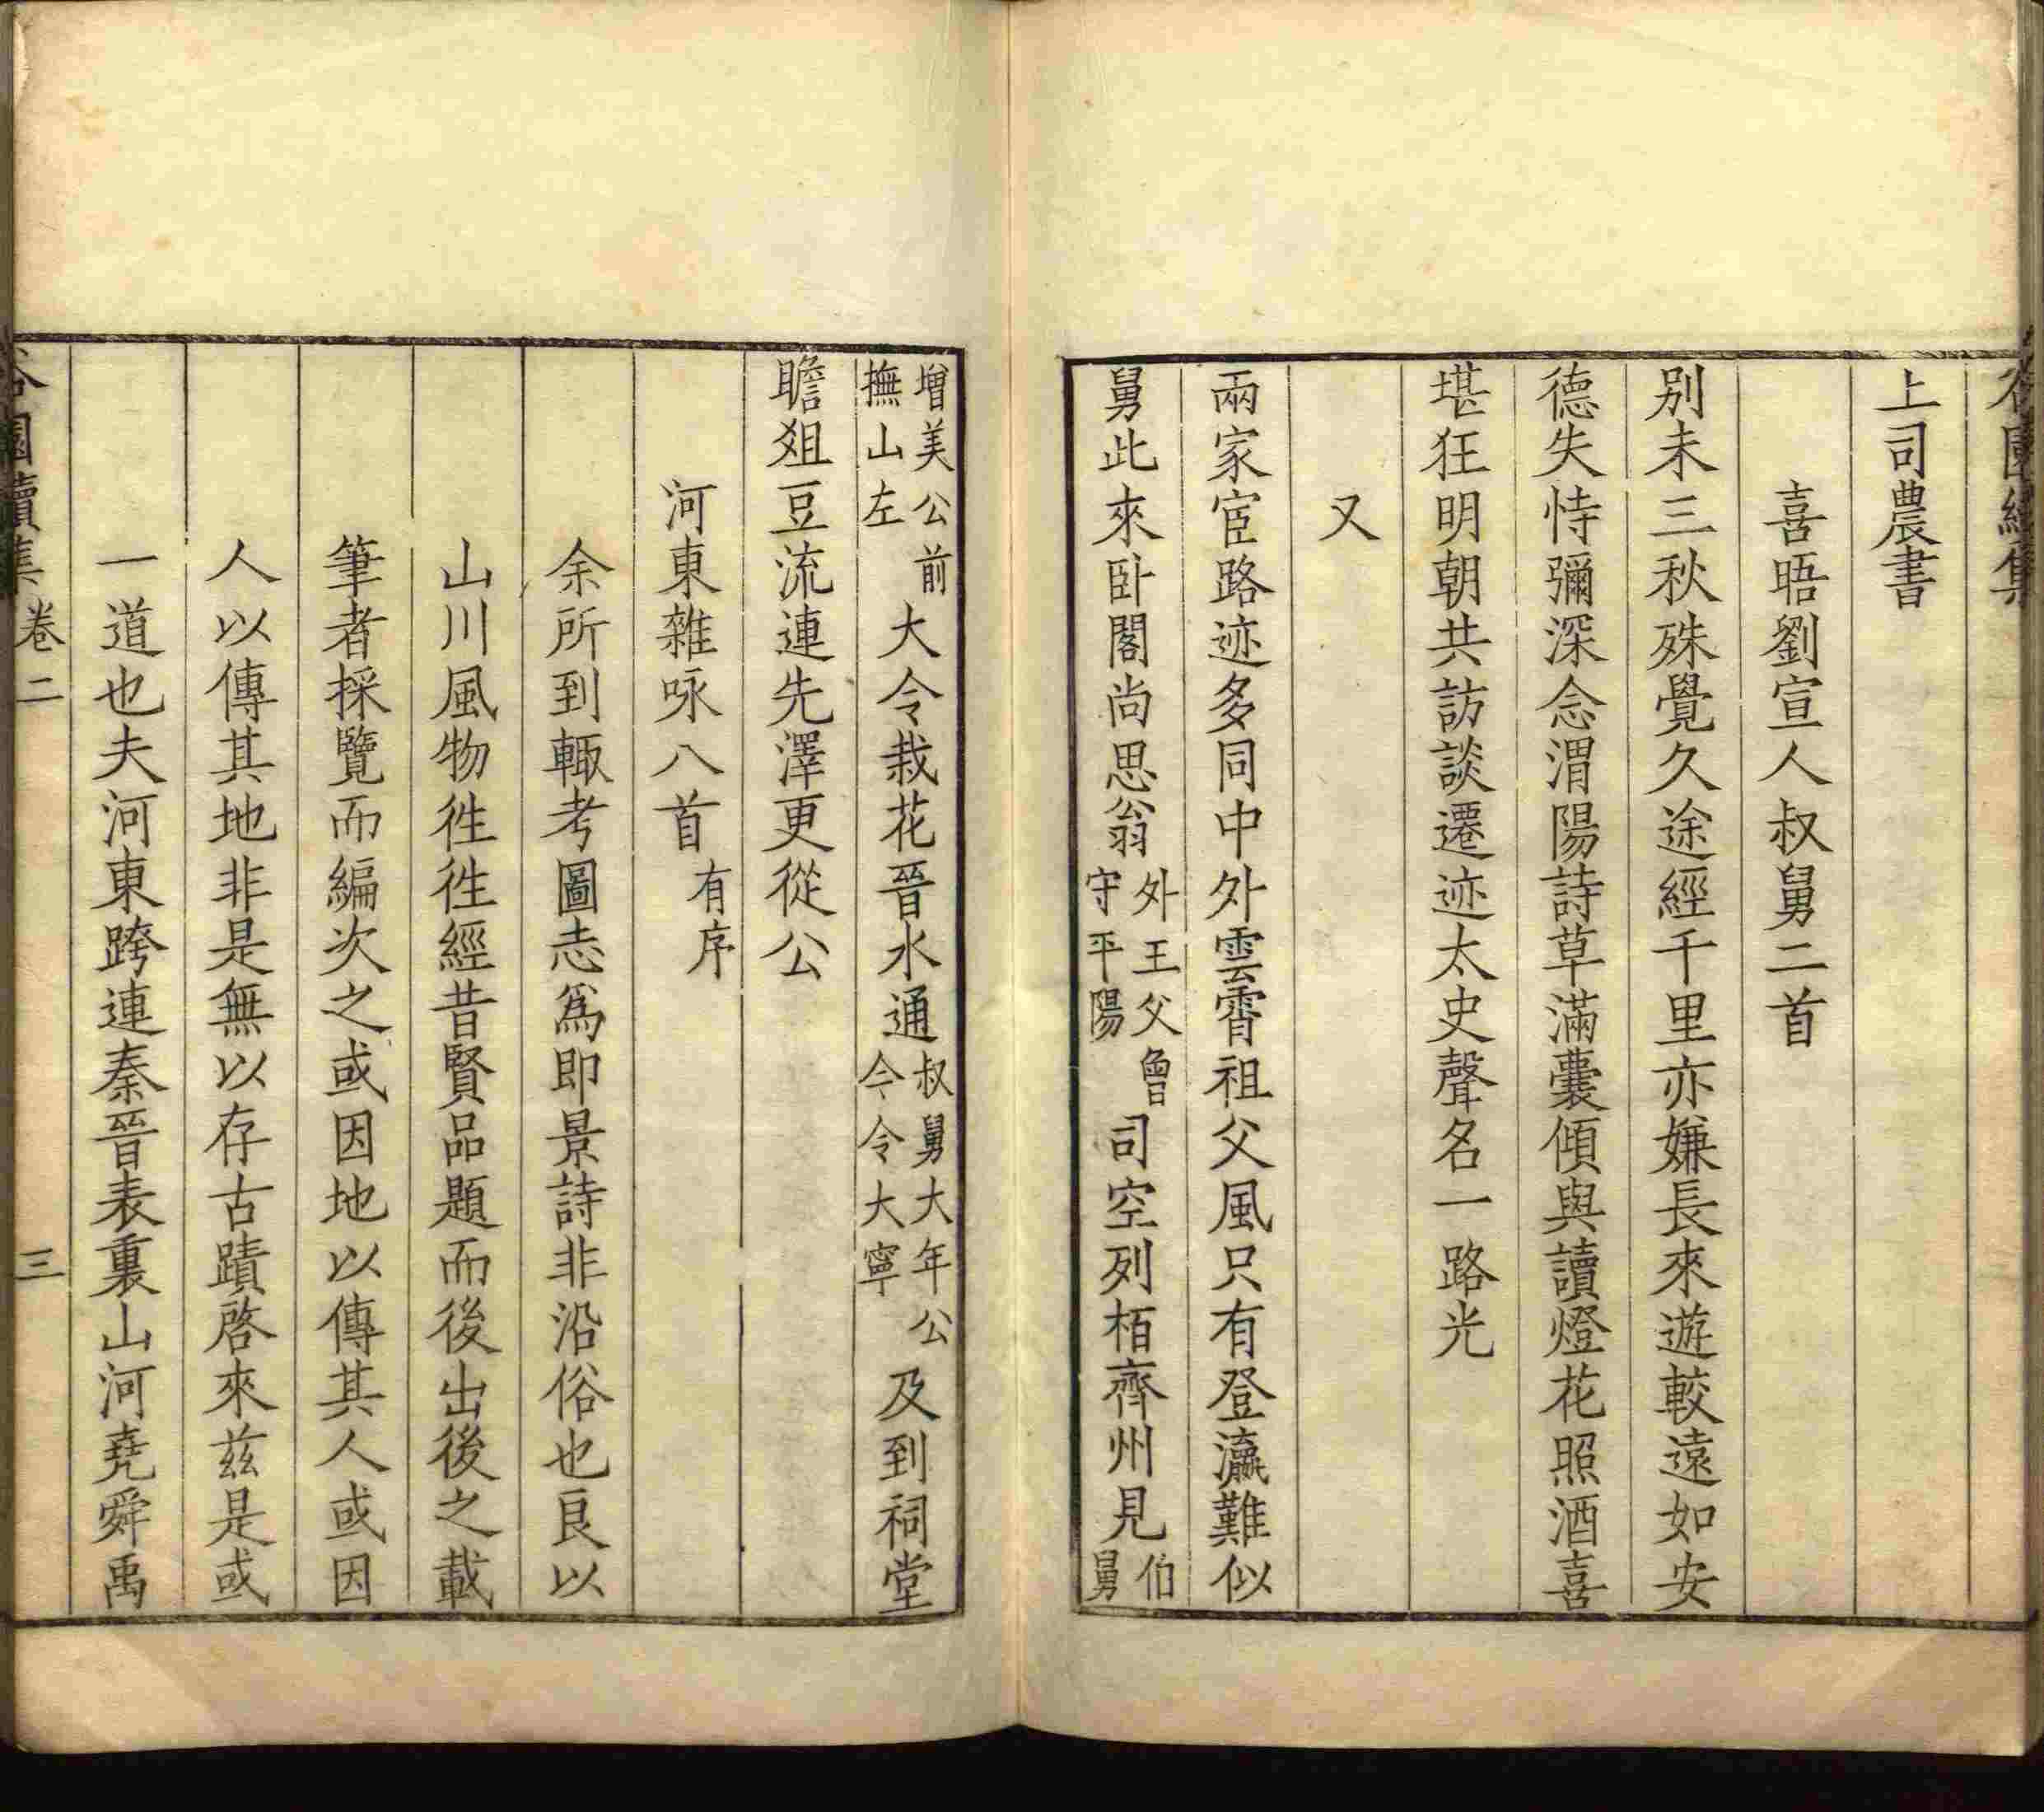 上司農書
喜晤劉宣人叔舅二首
別未三秋殊覺久途經千里亦嫌長來遊較遠如安
德失恃彌深念渭陽詩草滿囊傾與讀燈花照酒喜
堪狂明朝共訪談遷迹太史聲名一路光
又
兩家宦路迹多同中外雲霄祖父風只有登瀛難似
舅此來卧閣尚思翁外王父曾守平陽司空列栢齊州見伯舅
增美公前撫山左大令栽花晉水通叔舅大年公今令大寧及到祠堂
瞻爼豆流連先澤更從公
河東雜咏八首有序
余所到輙考圖志爲即景詩非沿俗也良以
山川風物徃徃經昔賢品題而後出後之載
筆者採覽而編次之或因地以傳其人或因
人以傳其地非是無以存古蹟啓來兹是或
一道也夫河東跨連秦晉表裏山河堯舜禹
園續集 卷二 三